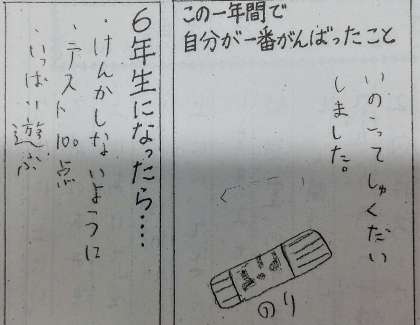 この一年間で
自分が一番がんばったこと
いのこってしゅくだい
しました。
のり
6年生になったら・・・・
・けんかしないように
・テスト100点
・いっぱい遊ぶ